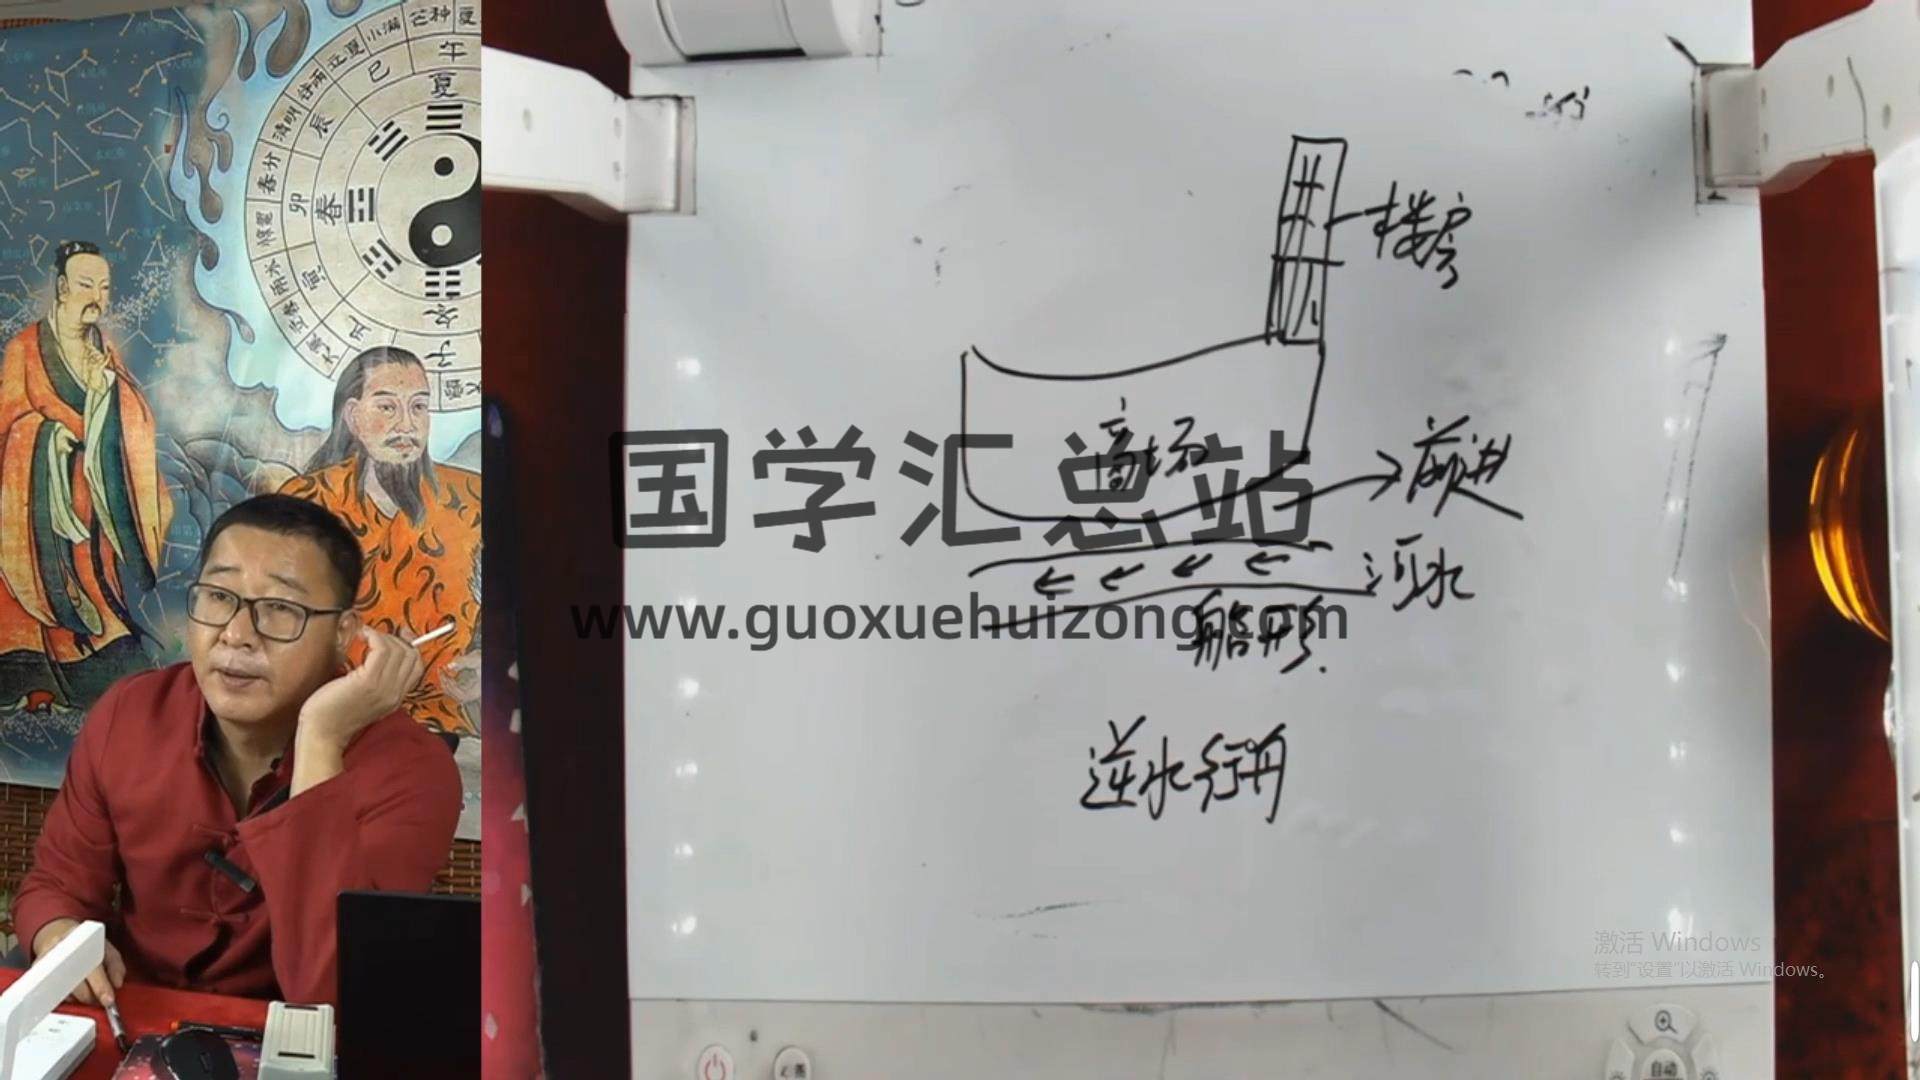 芒种
夏
小满
午
立夏
巳
夏
谷雨
辰
清明
春分
卯
春
惊蛰
雨水
寅
立春
大寒
丑
冬
子
楼房
商场
前进
河水
船形
逆水行舟
国学汇总站
www.guoxuehuizong.com
激活 Windows
转到“设置”以激活 Windows。
自动